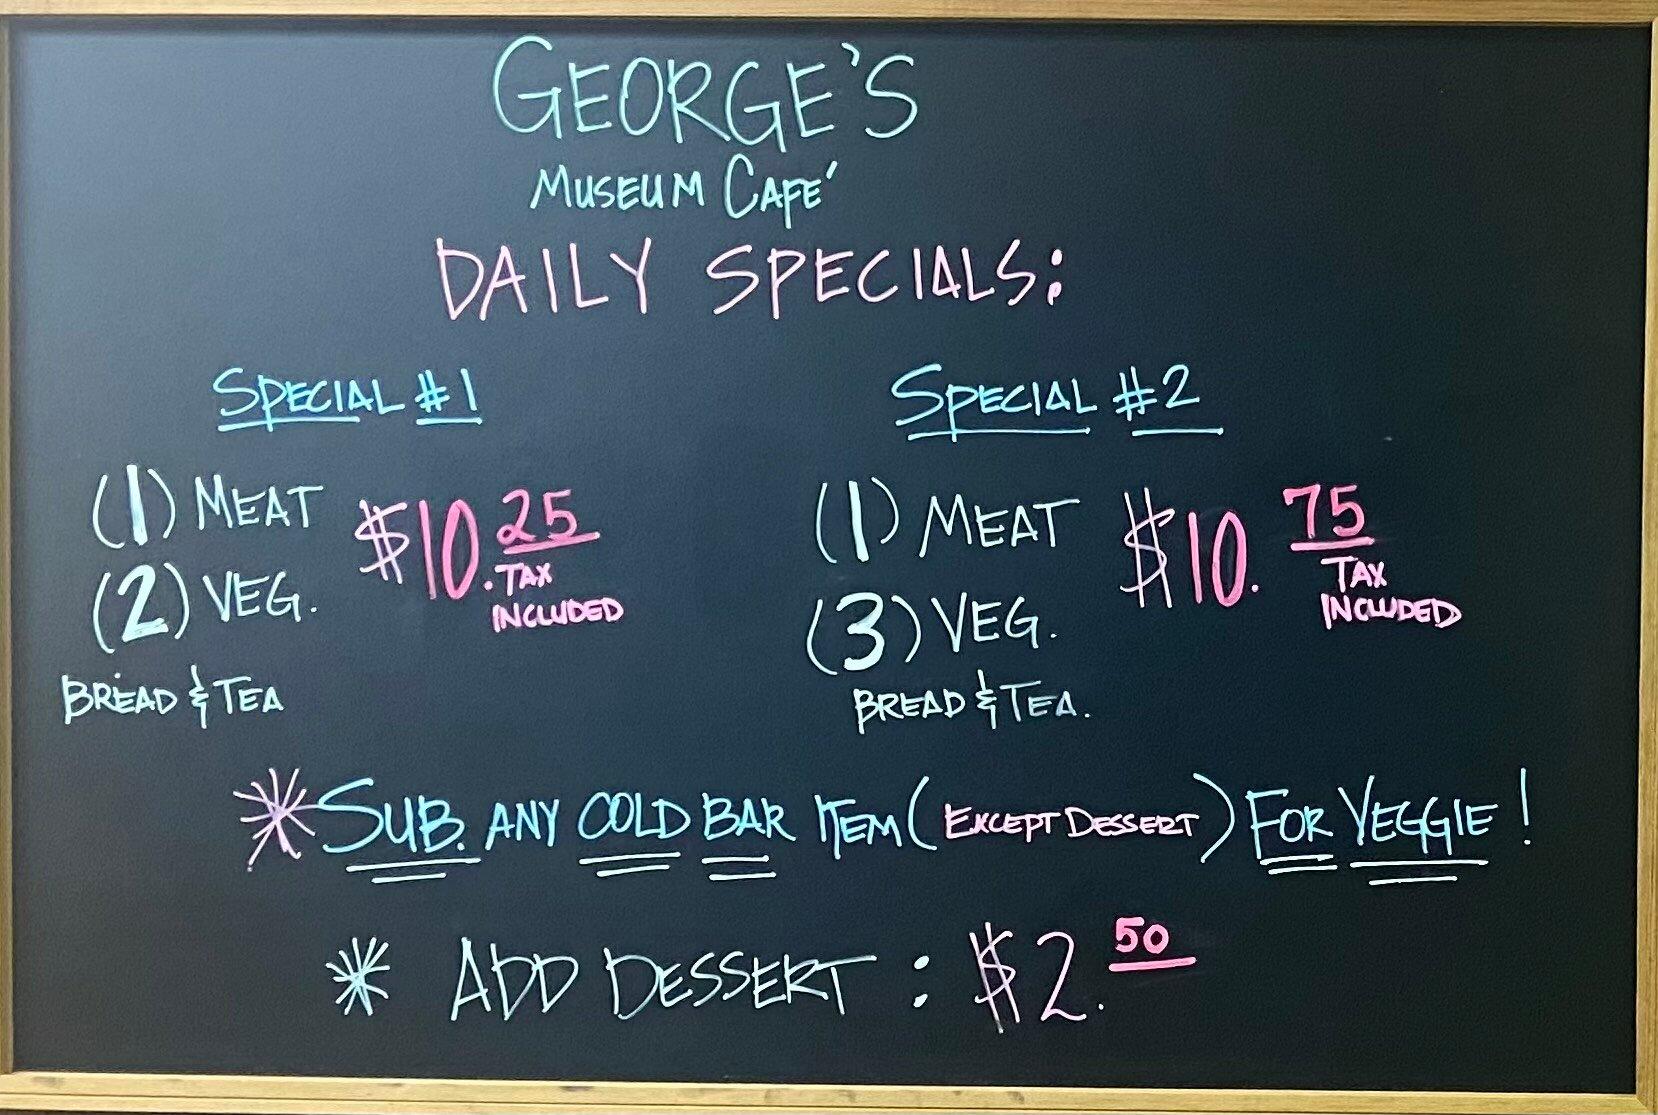 GEORGE'S
MUSEUM CAFE'
DAILY SPECIALS:
SPECIAL #1
(1) MEAT $10.25
TAX
(2) VEG. INCLUDED
BREAD & TEA
SPECIAL #2
(1) MEAT $10.75
TAX
(3) VEG. INCLUDED
BREAD & TEA.
*SUB. ANY COLD BAR ITEM (EXCEPT DESSERT) FOR VEGGIE!
* ADD DESSERT: $2.50